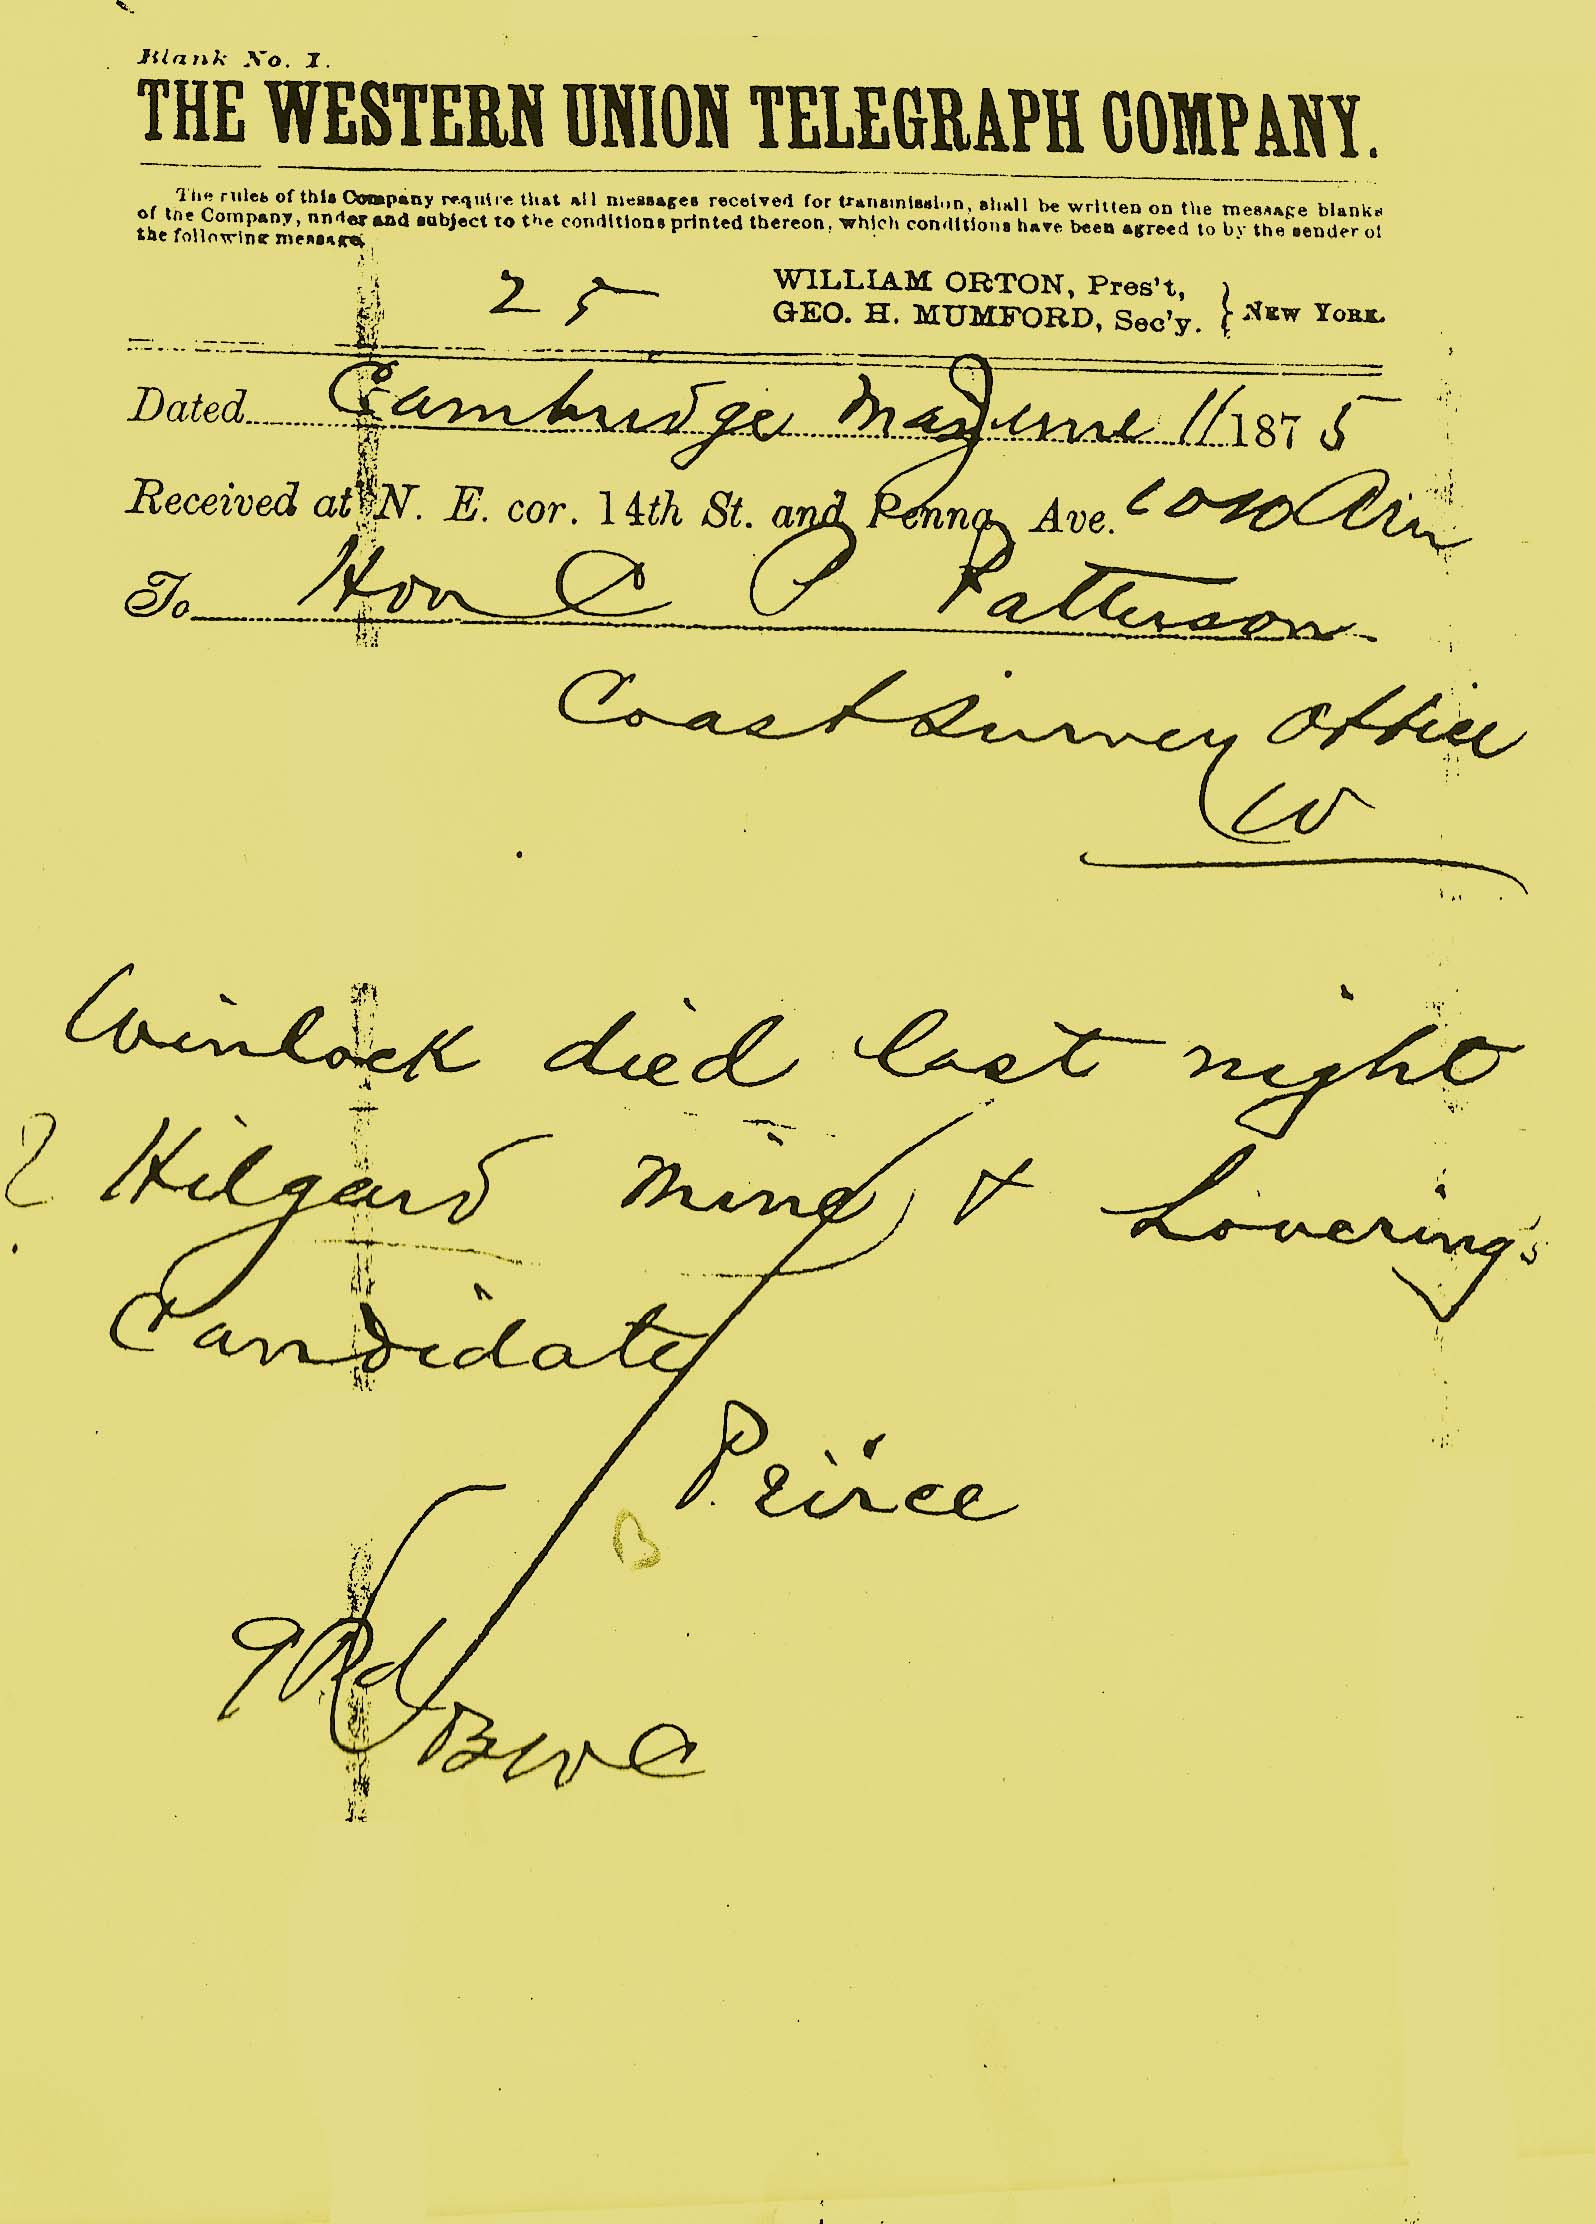 Blank No. 1.
THE WESTERN UNION TELEGRAPH COMPANY.
The rules of this Company require that all messages received for transmission, shall be written on the message blanks
of the Company, under and subject to the conditions printed thereon, which conditions have been agreed to by the sender of
the following message.
25
WILLIAM ORTON, Pres't,
GEO. H. MUMFORD, Sec'y. } NEW YORK.
Dated Cambridge Mass June 11 1875
Received at N. E. cor. 14th St. and Penna Ave. 1010 am
To Hon C P Patterson
Coast Survey Office
W
Winlock died last night
? Hilgard mine & Lovering's
Candidate
Peirce
B
9 Pd
BWC